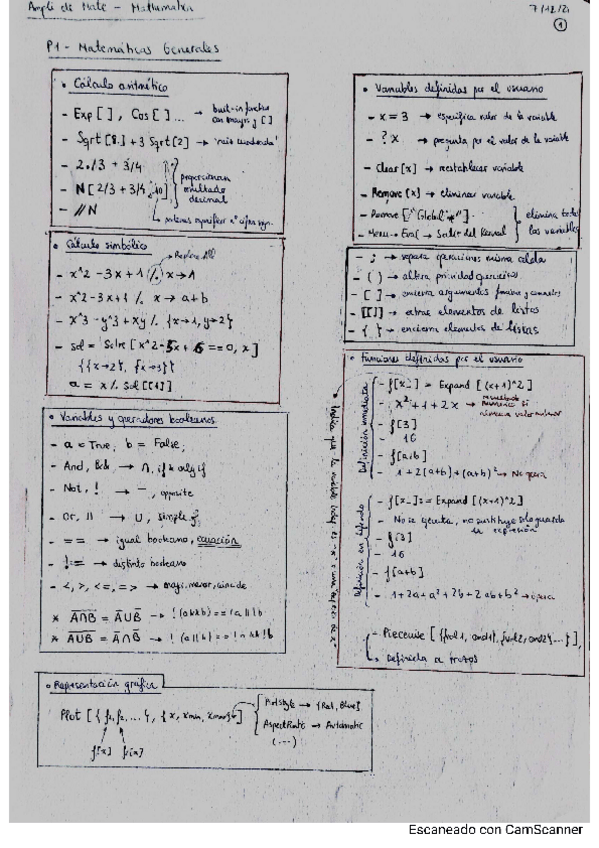 Ampli de Mate - Mathematica
7/12/21
1
P1 - Matemáticas Generales
• Cálculo aritmético
- Exp[ ], Cos[ ]... → built-in function con mayus y [ ]
- Sqrt[8.] + 3 Sqrt[2] → "raiz cuadrada"
- 2./3 + 3/4
- N[2/3 + 3/4, 10]
- //N
proporcionan resultado decimal
• Cálculo simbólico
→ Replace All
- x^2 - 3x + 1 /. x → 1
- x^2 - 3x + 1 /. x → a+b
- x^3 - y^3 + xy /. {x→1, y→2}
- sol = Solve[x^2 - 5x + 6 == 0, x]
{{x→2}, {x→3}}
a = x /. sol[[1]]
• Variables y operadores booleanos
- a = True, b = False,
- And, && → ∩, if & only if
- Not, ! → ¯, opposite
- Or, || → ∪, simple if
- == → igual booleano, ecuación
- != → distinto booleano
- <, >, <=, =>
* A∩B = A̅∪B̅ → !(a&&b) == !a || !b
* A∪B = A̅∩B̅ → !(a||b) == !a && !b
• Representación gráfica
Plot[{f1, f2, ...}, {x, xmin, xmax}]
f[x]
PlotStyle → {Red, Blue}
AspectRatio → Automatic
(...)
• Variables definidas por el usuario
- x = 3 → especifica valor de la variable
- ? x → pregunta por el valor de la variable
- Clear[x] → restablecer variable
- Remove[x] → eliminar variable
- Remove["Global`*"]
- Menu → Eval → Salir del Kernel
elimina todas las variables
- ; → separa operaciones misma celda
- ( ) → altera prioridad operaciones
- [ ] → encierra argumentos funciones y comandos
- [[ ]] → extrae elementos de listas
- { } → encierra elementos de listas
• Funciones definidas por el usuario
Definición inmediata
- f[x_] = Expand[(x+1)^2]
- x² + 1 + 2x →
- f[3]
16
- f[a+b]
- 1 + 2(a+b) + (a+b)² → No opera
Definición en diferido
- f[x_] := Expand[(x+1)^2]
- No se ejecuta, no sustituye solo guarda la expresión
- f[3]
16
- f[a+b]
- 1 + 2a + a² + 2b + 2ab + b² → opera
- Piecewise[{{fun1, cond1}, {fun2, cond2}...}],
→ Definirla a trozos
Escaneado con CamScanner